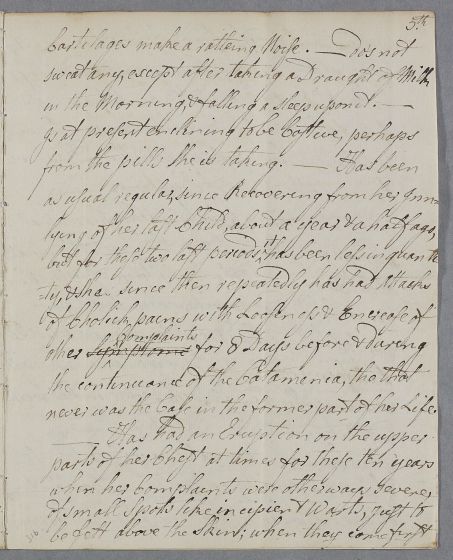 5th
Cartilages make a ratleing Noise. — Does not
sweat any, except after taking a Draught of Milk
in the Morning, & falling a sleep upon it. —
Is at present enclining to be Costive, perhaps
from the pills she is taking. — Has been
as usual regular, since Recovering from her Inn=
lying of her last Child, about a year & a half ago,
but for these two last periods, it has been less in quanti
=ty, & she since then repeatedly has had attacks
of Cholick pains with Looseness & Encrease of
other Symptoms complaints for 8 Days before & during
the continuance of the Catamenia, tho that
never was the Case in the former part of her Life.
— Has had an Eruption on the upper
parts of her Chest at times for these ten years
when her Complaints were otherways severe,
of small Spots like incipient Warts, just to
be felt above the Skin; when they come first